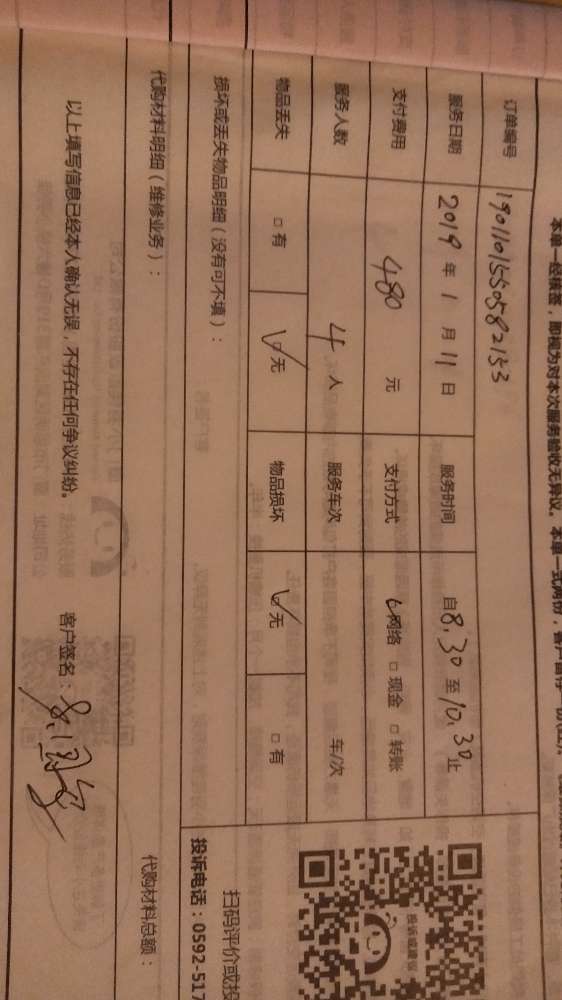 本单一经核签，即视为对本次服务验收无异议。本单一式两份，客户留存一份
订单编号 190110155058２153
服务日期 2019 年 1 月 11 日 服务时间 自 8.30 至 10.30 止
支付费用 480 元 支付方式 网络 □ 现金 □ 转账
服务人数 4 人 服务车次 车/次
物品丢失 □ 有 ☑ 无 物品损坏 ☑ 无 □ 有
损坏或丢失物品明细（没有可不填）：
扫码评价或投
投诉或建议
投诉电话：0592-517
代购材料明细（维修业务）：
代购材料总额：
以上填写信息已经本人确认无误，不存在任何争议纠纷。 客户签名：